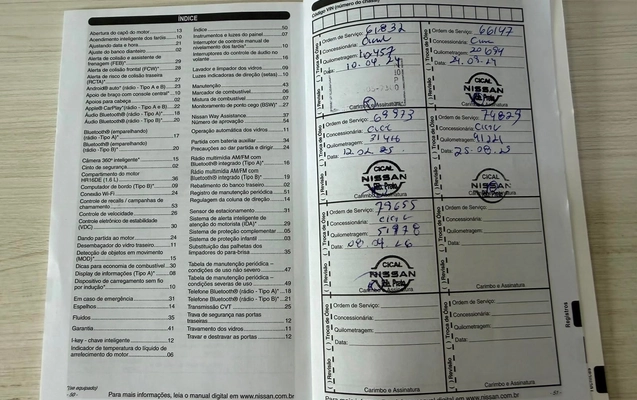 ÍNDICE
Abertura do capô do motor ....13
Acendimento inteligente dos faróis ....10
Ajustando data e hora ....21
Ajuste do banco dianteiro ....02
Alerta de colisão e assistente de
frenagem (FEB) ....29
Alerta de colisão frontal (FCW) ....28
Alerta de risco de colisão traseira
(RCTA) ....27
Android auto® (rádio - Tipo A e B) ....23
Apoio de braço com console central ....10
Apoios para cabeça ....02
Apple® CarPlay (rádio - Tipo A e B) ....22
Áudio Bluetooth® (rádio - Tipo A) ....18
Áudio Bluetooth® (rádio - Tipo B) ....20
Bluetooth® (emparelhando)
(rádio -Tipo A) ....17
Bluetooth® (emparelhando)
(rádio - Tipo B) ....20
Câmera 360° inteligente* ....15
Cinto de segurança ....02
Compartimento do motor
HR16DE (1.6 L) ....36
Computador de bordo (Tipo B) ....09
Conexão Wi-Fi ....24
Controle de recalls / campanhas de
chamamento ....53
Controle de velocidade ....26
Controle eletrônico de estabilidade
(VDC) ....30
Dando partida ao motor ....24
Desembaçador do vidro traseiro ....11
Detecção de objetos em movimento
(MOD)* ....15
Dicas para economia de combustível ....30
Display de informações (Tipo A)* ....08
Dispositivo de carregamento sem fio
por indução* ....10
Em caso de emergência ....31
Espelhos ....14
Fluidos ....35
Garantia ....41
I-key - chave inteligente ....12
Indicador de temperatura do líquido de
arrefecimento do motor ....06
Índice ....50
Instrumentos e luzes do painel ....07
Interruptor do controle manual de
nivelamento dos faróis* ....10
Interruptores do controle de áudio no
volante ....16
Lavador e limpador dos vidros ....09
Luzes indicadoras de direção (setas) ....10
Manutenção ....43
Marcador de combustível ....06
Mistura de combustível ....07
Monitoramento de ponto cego (BSW) ....27
Nissan Way Assistance ....37
Número de aprovação ....54
Operação automática dos vidros ....11
Partida com bateria auxiliar ....34
Precauções ao dar partida e dirigir ....24
Rádio multimídia AM/FM com
Bluetooth® integrado (Tipo A) ....16
Rádio multimídia AM/FM com
Bluetooth® integrado (Tipo B) ....19
Rebatimento do banco traseiro ....02
Registro de manutenção periódica ....51
Regulagem da coluna de direção ....14
Sensor de estacionamento ....31
Sistema de alerta inteligente de
atenção do motorista (IDA)* ....29
Sistema de proteção complementar ....05
Sistema de proteção infantil ....03
Substituição das palhetas dos
limpadores do para-brisa ....35
Tabela de manutenção periódica –
condições de uso não severo ....47
Tabela de manutenção periódica –
condições severas de uso ....49
Telefone Bluetooth® (rádio - Tipo A) ....18
Telefone Bluetooth® (rádio - Tipo B) ....21
Transmissão CVT ....25
Trava de segurança nas portas
traseiras ....12
Travamento dos vidros ....11
Travar e destravar as portas ....12
*(se equipado)
- 50 -
Para mais informações, leia o manual digital em www.nissan.com.br
Código VIN (número do chassi)
( ) Revisão ( ) Troca de Óleo
Ordem de Serviço: 61832
Concessionária:
Quilometragem: 10457
Data: 10.04.24
Carimbo e Assinatura
Ordem de Serviço: 66147
Concessionária: Cical
Quilometragem: 20694
Data:
CICAL
NISSAN
Carimbo e Assinatura
Ordem de Serviço: 69973
Concessionária: Cical
Quilometragem:
Data: 12.02.25
CICAL
NISSAN
Ordem de Serviço: 74829
Concessionária: Cical
Quilometragem:
Data: 25.08.25
CICAL
NISSAN
Ordem de Serviço: 79655
Concessionária: Cical
Quilometragem: 51878
Data: 08.04.26
CICAL
NISSAN
Ordem de Serviço:
Concessionária:
Quilometragem:
Data:
Carimbo e Assinatura
Ordem de Serviço:
Concessionária:
Quilometragem:
Data:
Carimbo e Assinatura
Ordem de Serviço:
Concessionária:
Quilometragem:
Data:
Carimbo e Assinatura
Registros
Para mais informações, leia o manual digital em www.nissan.com.br